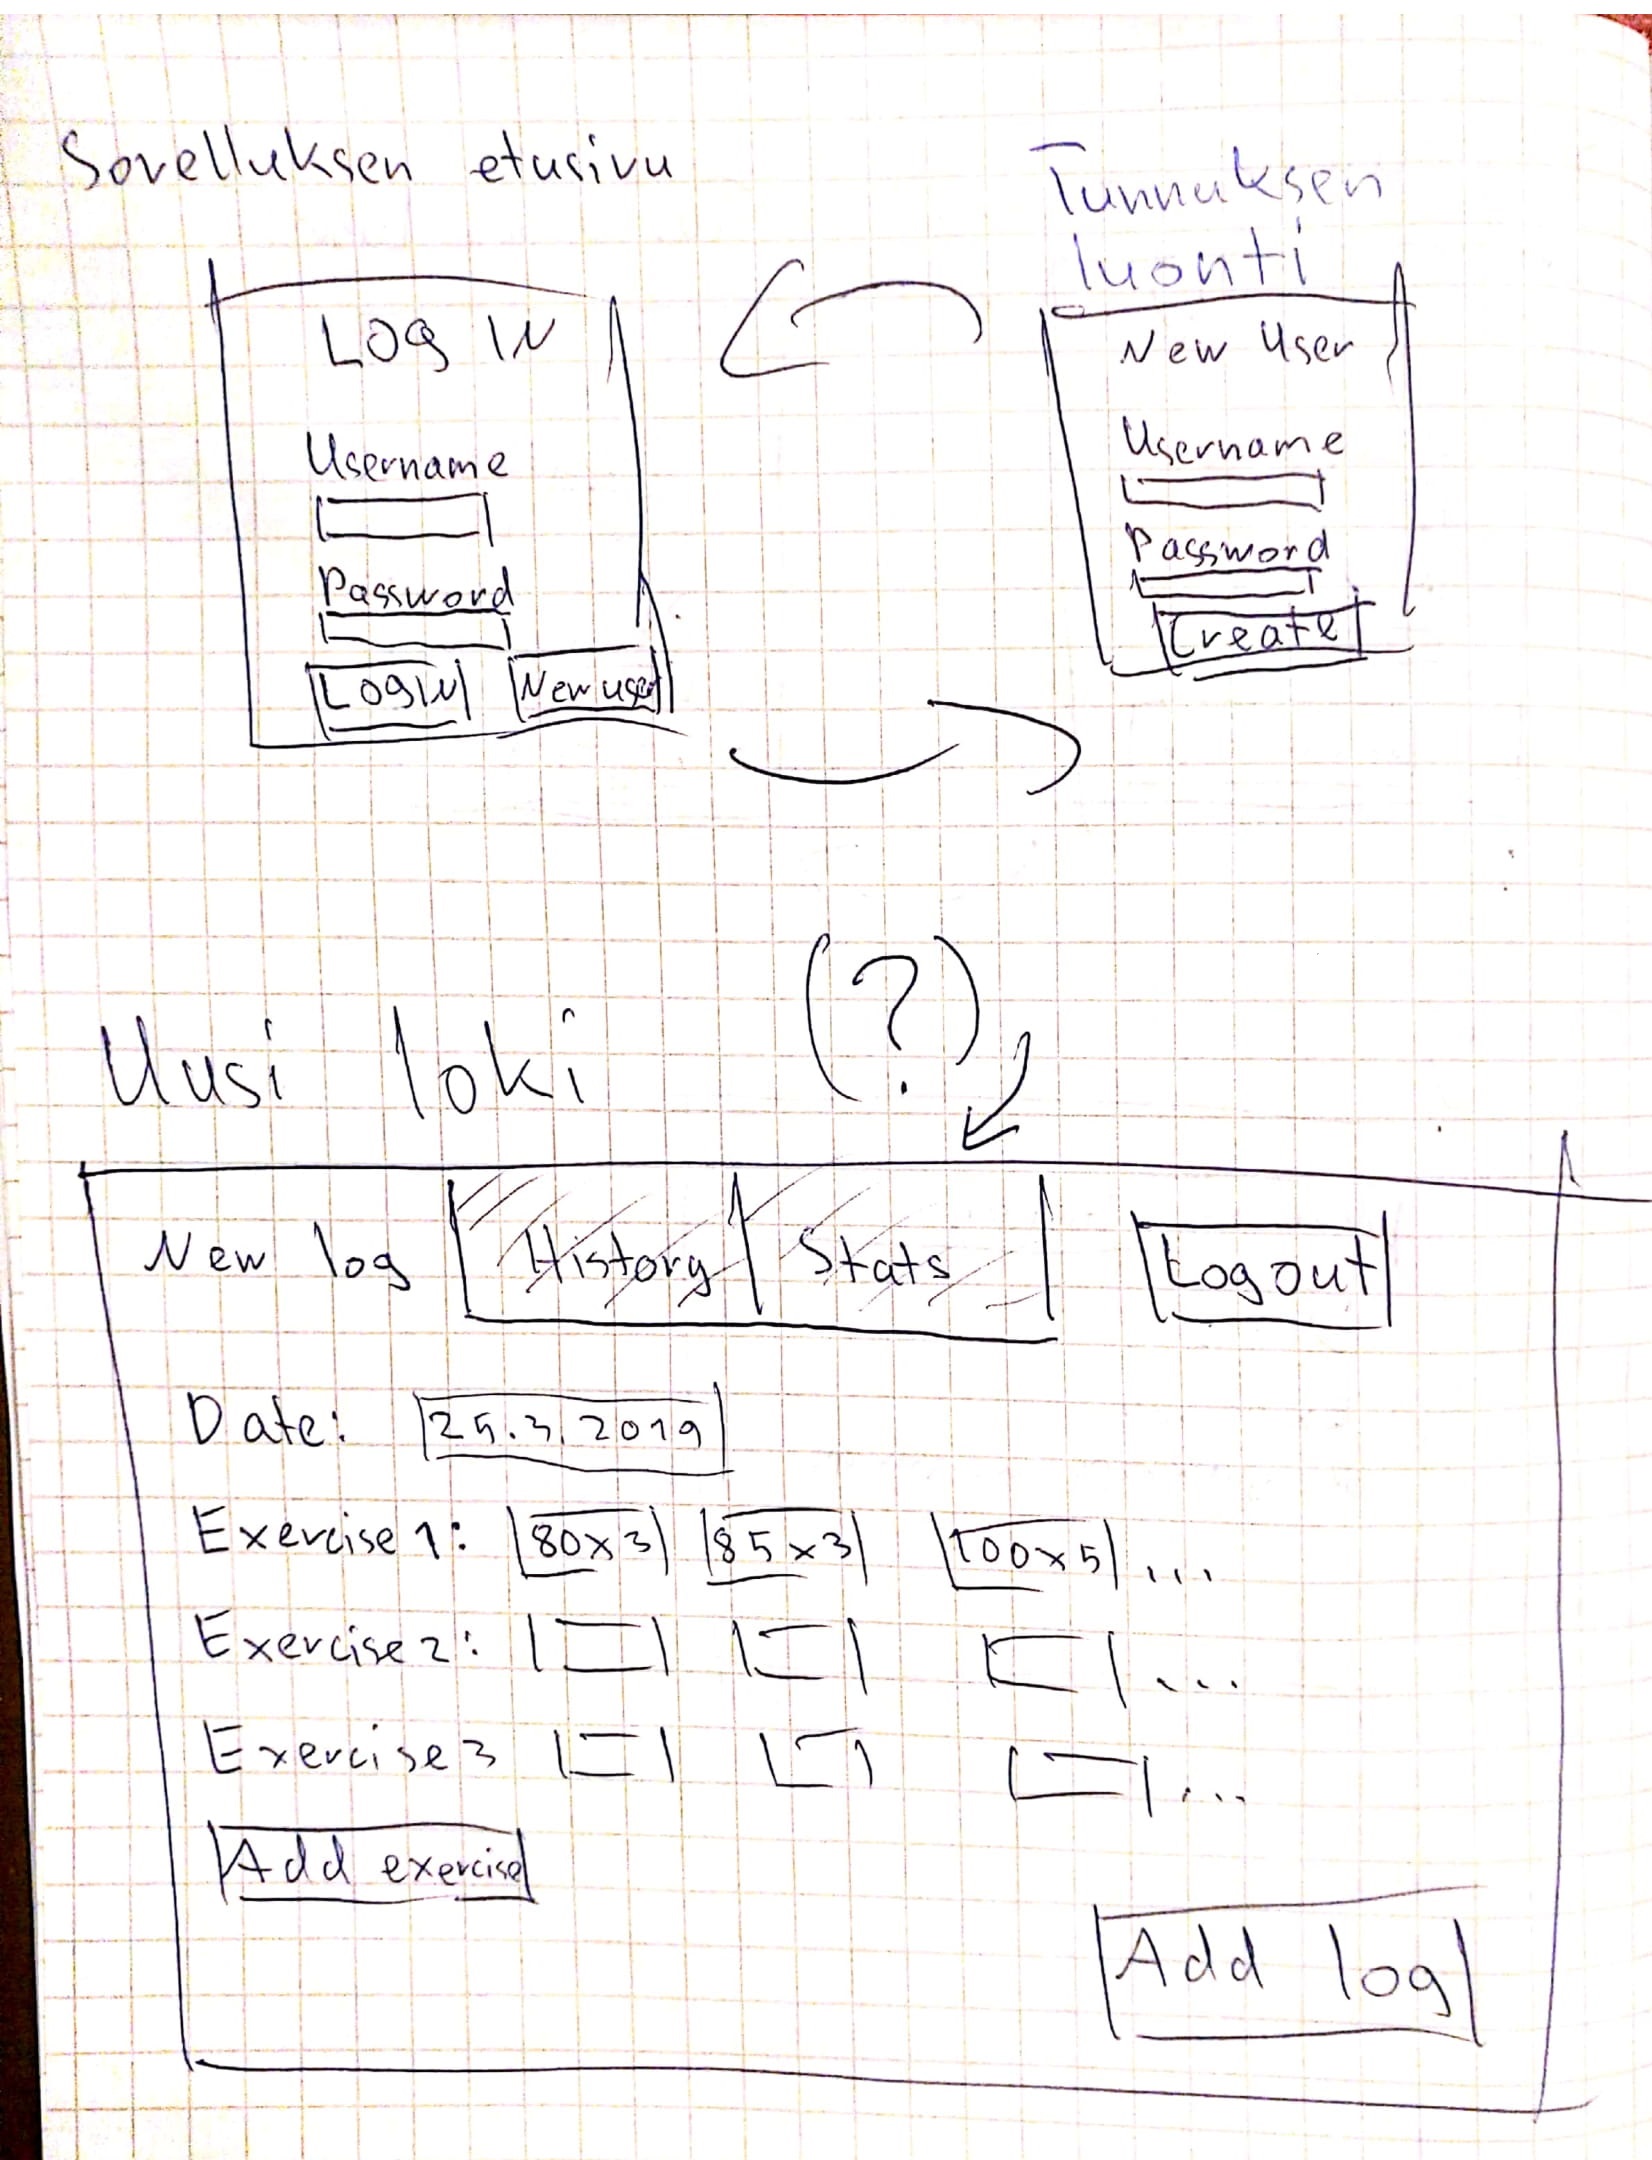 Sovelluksen etusivu
Tunnuksen
luonti
LOG IN
Username
Password
LOGIN New user
New User
Username
Password
Create
Uusi loki (?)
New log History Stats Logout
Date: 25.3.2019
Exercise 1: 80x3 85x3 100x5 ...
Exercise 2: ...
Exercise 3 ...
Add exercise
Add log